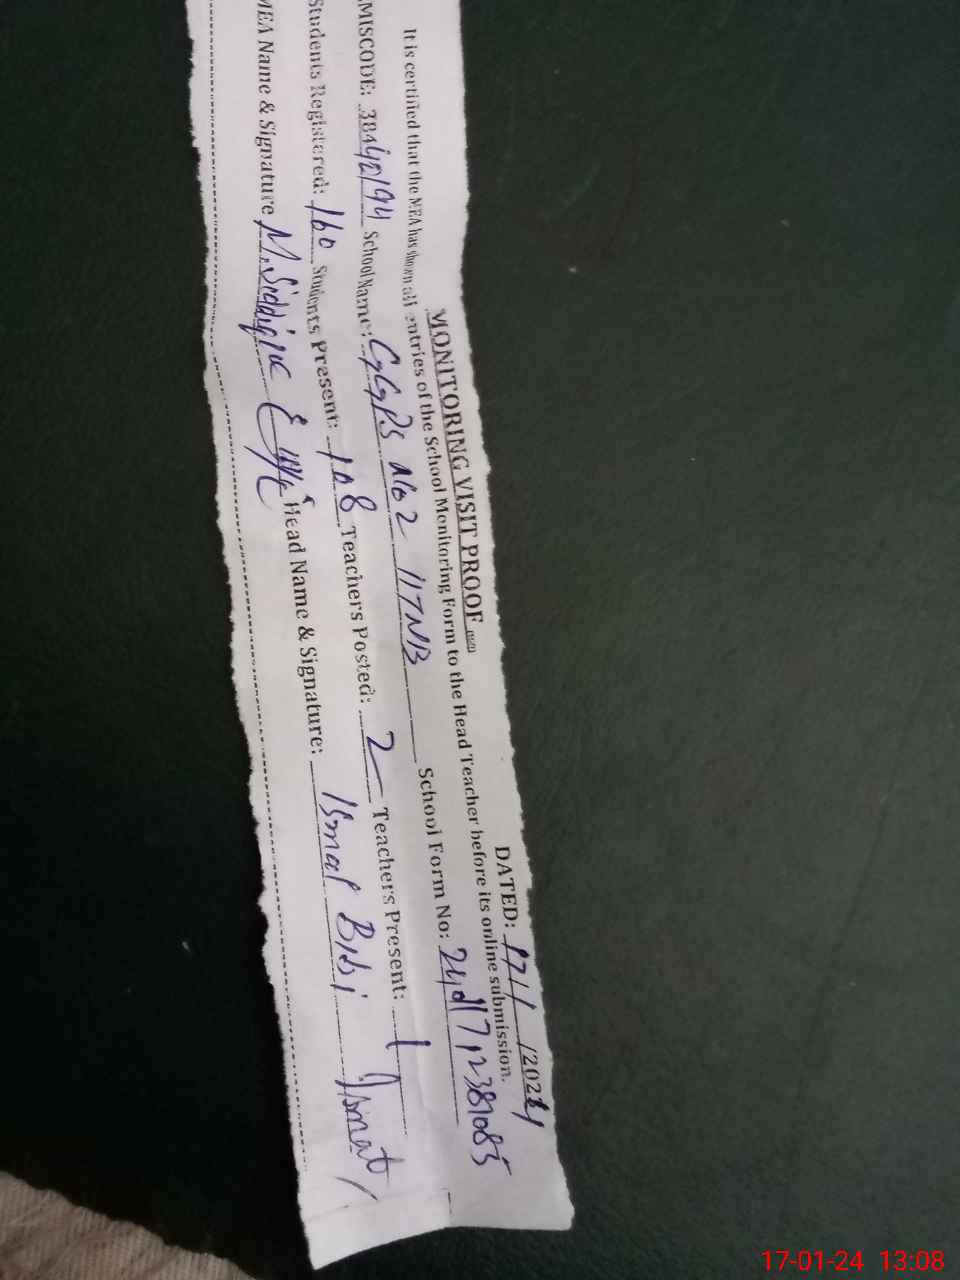 MONITORING VISIT PROOF
DATED: 17/1/2024
It is certified that the MEA has shown all entries of the School Monitoring Form to the Head Teacher before its online submission.
EMISCODE: 38440194 School Name: GGPS No 2 117NB School Form No:
Students Registered: 160 Students Present: 108 Teachers Posted: 2 Teachers Present: 1
MEA Name & Signature M. Siddique Head Name & Signature: Ismat Bibi Ismat
17-01-24 13:08